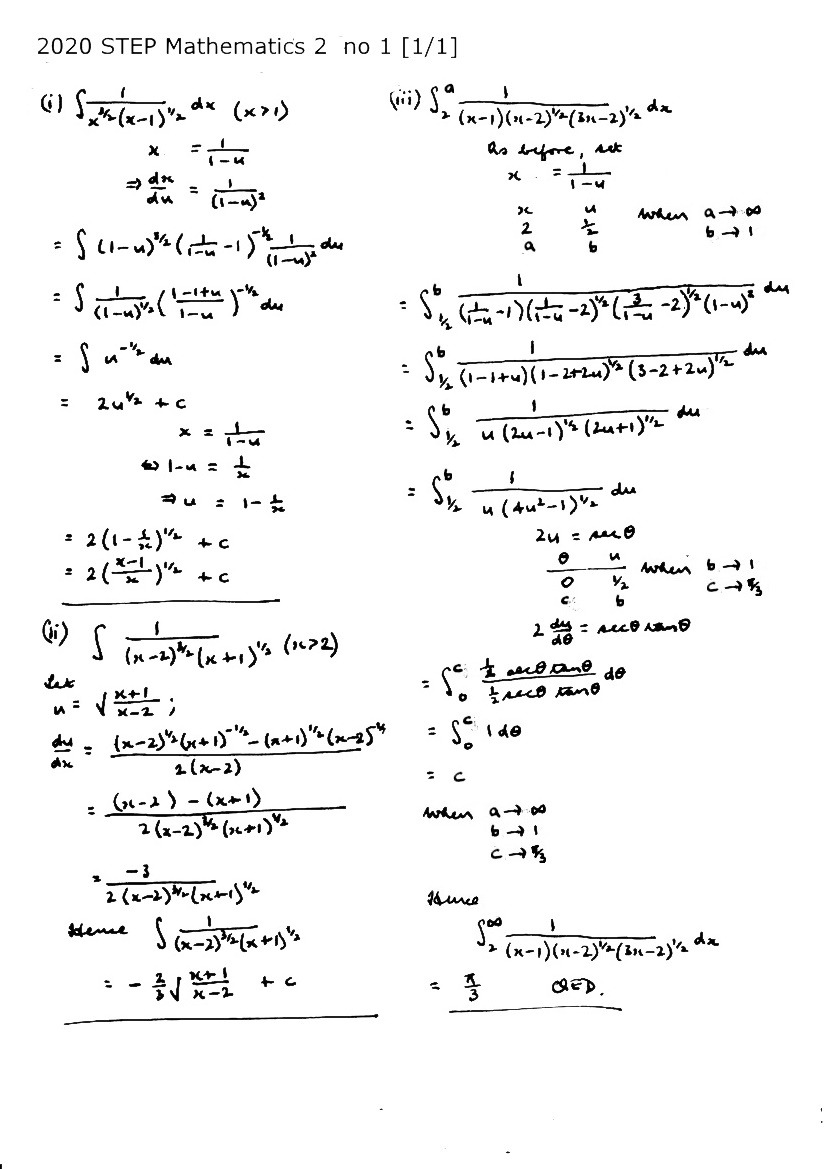 2020 STEP Mathematics 2 no 1 [1/1]
(i) ∫ 1/(x^{3/2}(x-1)^{1/2}) dx (x>1)
x = 1/(1-u)
⇒ dx/du = 1/(1-u)^2
= ∫ (1-u)^{3/2} (1/(1-u) - 1)^{-1/2} 1/(1-u)^2 du
= ∫ 1/(1-u)^{1/2} ((1-1+u)/(1-u))^{-1/2} du
= ∫ u^{-1/2} du
= 2u^{1/2} + c
x = 1/(1-u)
⇔ 1-u = 1/x
⇒ u = 1 - 1/x
= 2(1 - 1/x)^{1/2} + c
= 2((x-1)/x)^{1/2} + c
(ii) ∫ 1/((x-2)^{3/2}(x+1)^{1/2}) (x>2)
Let
u = √((x+1)/(x-2)) ;
du/dx = ((x-2)^{1/2}(x+1)^{-1/2} - (x+1)^{1/2}(x-2)^{-1/2})/(2(x-2))
= ((x-2) - (x+1))/(2(x-2)^{3/2}(x+1)^{1/2})
= -3/(2(x-2)^{3/2}(x+1)^{1/2})
Hence ∫ 1/((x-2)^{3/2}(x+1)^{1/2})
= -2/3 √((x+1)/(x-2)) + c
(iii) ∫_2^a 1/((x-1)(x-2)^{1/2}(3x-2)^{1/2}) dx
As before, set
x = 1/(1-u)
x u when a → ∞
2 1/2 b → 1
a b
= ∫_{1/2}^b 1/((1/(1-u) - 1)(1/(1-u) - 2)^{1/2}(3/(1-u) - 2)^{1/2}(1-u)^2) du
= ∫_{1/2}^b 1/((1-1+u)(1-2+2u)^{1/2}(3-2+2u)^{1/2}) du
= ∫_{1/2}^b 1/(u(2u-1)^{1/2}(2u+1)^{1/2}) du
= ∫_{1/2}^b 1/(u(4u^2-1)^{1/2}) du
2u = secθ
θ u when b → 1
0 1/2 c → π/3
c b
2 du/dθ = secθ tanθ
= ∫_0^c (1/2 secθ tanθ)/(1/2 secθ tanθ) dθ
= ∫_0^c 1 dθ
= c
when a → ∞
b → 1
c → π/3
Hence
∫_2^∞ 1/((x-1)(x-2)^{1/2}(3x-2)^{1/2}) dx
= π/3 QED.